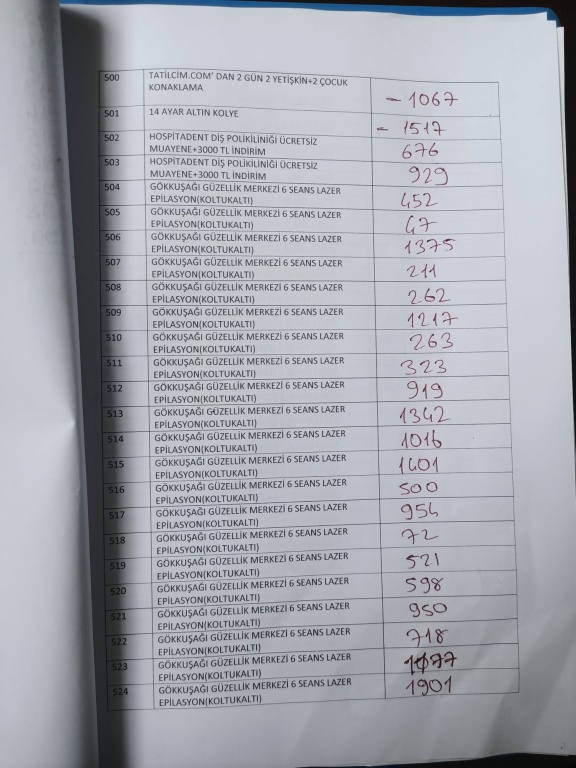 500 TATİLCİM.COM' DAN 2 GÜN 2 YETİŞKİN+2 ÇOCUK
KONAKLAMA - 1067
501 14 AYAR ALTIN KOLYE - 1517
502 HOSPİTADENT DİŞ POLİKİLİNİĞİ ÜCRETSİZ
MUAYENE+3000 TL İNDİRİM 676
503 HOSPİTADENT DİŞ POLİKİLİNİĞİ ÜCRETSİZ
MUAYENE+3000 TL İNDİRİM 929
504 GÖKKUŞAĞI GÜZELLİK MERKEZİ 6 SEANS LAZER
EPİLASYON(KOLTUKALTI) 452
505 GÖKKUŞAĞI GÜZELLİK MERKEZİ 6 SEANS LAZER
EPİLASYON(KOLTUKALTI) 47
506 GÖKKUŞAĞI GÜZELLİK MERKEZİ 6 SEANS LAZER
EPİLASYON(KOLTUKALTI) 1375
507 GÖKKUŞAĞI GÜZELLİK MERKEZİ 6 SEANS LAZER
EPİLASYON(KOLTUKALTI) 211
508 GÖKKUŞAĞI GÜZELLİK MERKEZİ 6 SEANS LAZER
EPİLASYON(KOLTUKALTI) 262
509 GÖKKUŞAĞI GÜZELLİK MERKEZİ 6 SEANS LAZER
EPİLASYON(KOLTUKALTI) 1217
510 GÖKKUŞAĞI GÜZELLİK MERKEZİ 6 SEANS LAZER
EPİLASYON(KOLTUKALTI) 263
511 GÖKKUŞAĞI GÜZELLİK MERKEZİ 6 SEANS LAZER
EPİLASYON(KOLTUKALTI) 323
512 GÖKKUŞAĞI GÜZELLİK MERKEZİ 6 SEANS LAZER
EPİLASYON(KOLTUKALTI) 919
513 GÖKKUŞAĞI GÜZELLİK MERKEZİ 6 SEANS LAZER
EPİLASYON(KOLTUKALTI) 1342
514 GÖKKUŞAĞI GÜZELLİK MERKEZİ 6 SEANS LAZER
EPİLASYON(KOLTUKALTI) 1016
515 GÖKKUŞAĞI GÜZELLİK MERKEZİ 6 SEANS LAZER
EPİLASYON(KOLTUKALTI) 1401
516 GÖKKUŞAĞI GÜZELLİK MERKEZİ 6 SEANS LAZER
EPİLASYON(KOLTUKALTI) 500
517 GÖKKUŞAĞI GÜZELLİK MERKEZİ 6 SEANS LAZER
EPİLASYON(KOLTUKALTI) 954
518 GÖKKUŞAĞI GÜZELLİK MERKEZİ 6 SEANS LAZER
EPİLASYON(KOLTUKALTI) 72
519 GÖKKUŞAĞI GÜZELLİK MERKEZİ 6 SEANS LAZER
EPİLASYON(KOLTUKALTI) 521
520 GÖKKUŞAĞI GÜZELLİK MERKEZİ 6 SEANS LAZER
EPİLASYON(KOLTUKALTI) 598
521 GÖKKUŞAĞI GÜZELLİK MERKEZİ 6 SEANS LAZER
EPİLASYON(KOLTUKALTI) 950
522 GÖKKUŞAĞI GÜZELLİK MERKEZİ 6 SEANS LAZER
EPİLASYON(KOLTUKALTI) 718
523 GÖKKUŞAĞI GÜZELLİK MERKEZİ 6 SEANS LAZER
EPİLASYON(KOLTUKALTI)
524 GÖKKUŞAĞI GÜZELLİK MERKEZİ 6 SEANS LAZER
EPİLASYON(KOLTUKALTI) 1901